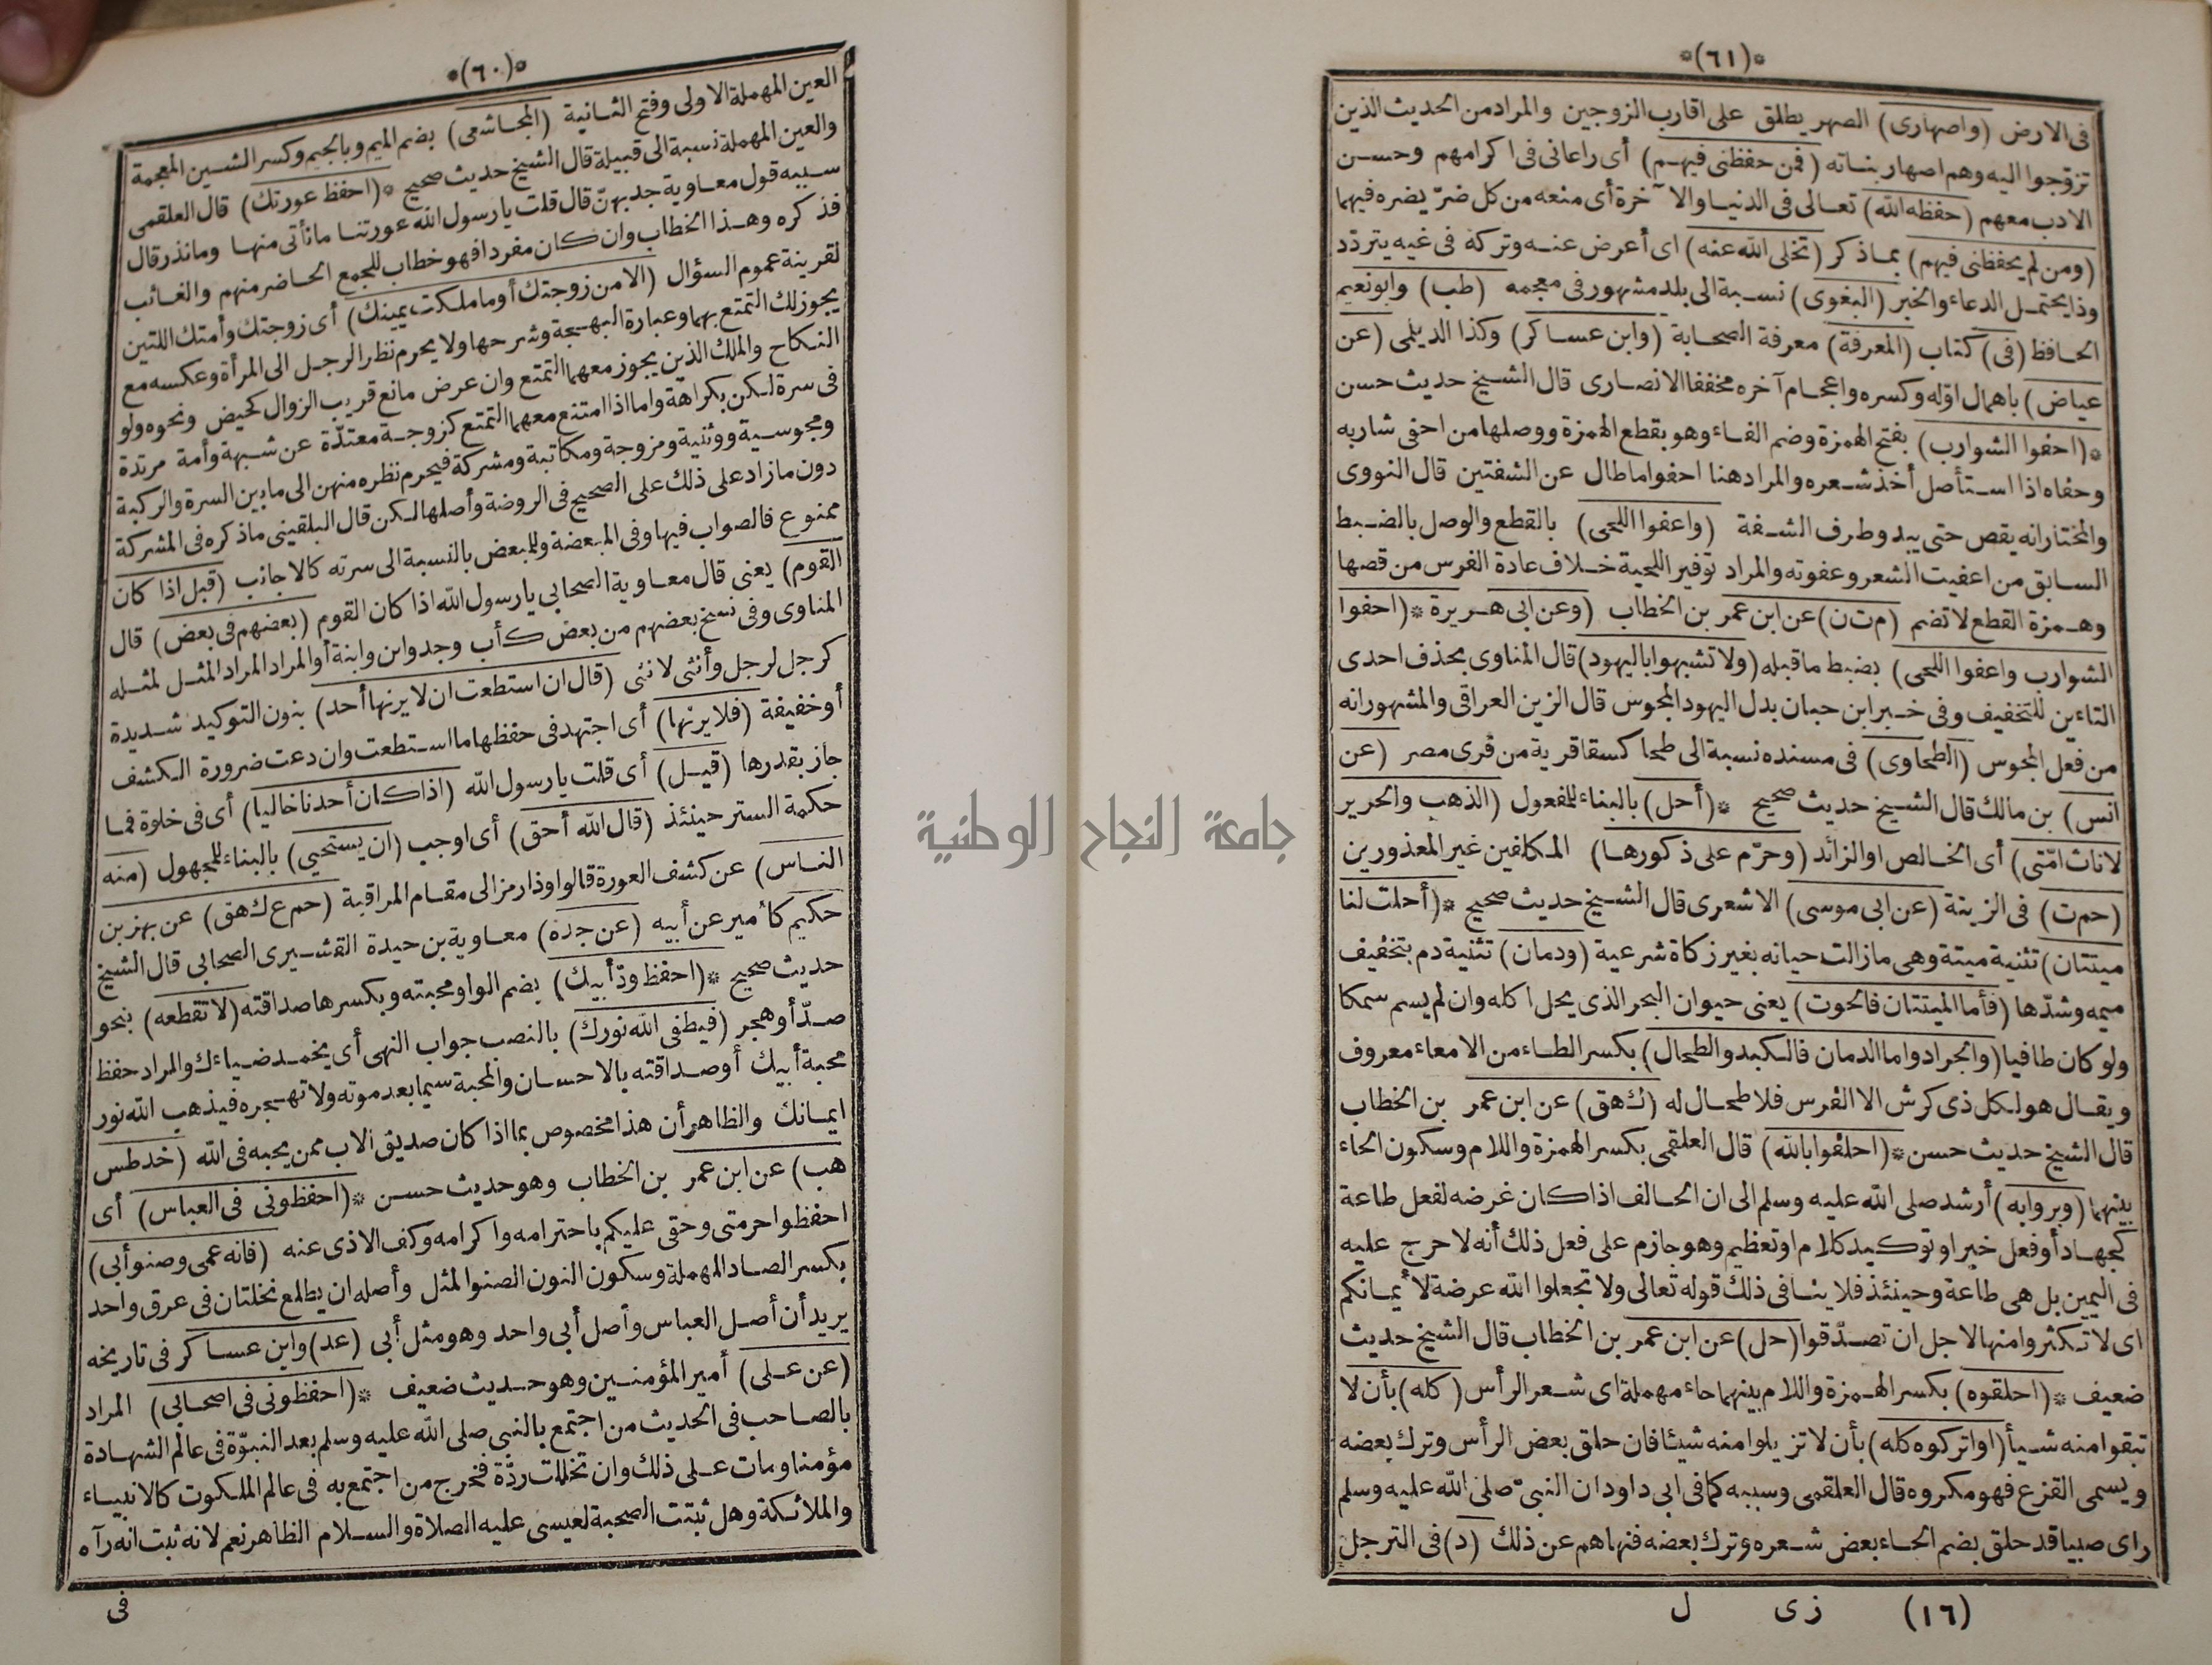 *(٦٠)*
العين المهملة الاولى وفتح الثانية (المجاشعى) بضم الميم وبالجيم وكسر الشين المعجمة
والعين المهملة نسبة الى قبيلة قال الشيخ حديث صحيح * (احفظ عورتك) قال العلقمى
سببه قول معاوية جد بهز قال قلت يا رسول الله عورتنا ما نأتى منها وما نذر قال
فذكره وهذا الخطاب وان كان مفردا فهو خطاب للجمع الحاضر منهم والغائب
لقرينة عموم السؤال (الا من زوجتك أو ما ملكت يمينك) أى زوجتك وأمتك اللتين
يجوز لك التمتع بهما وعبارة البهجة وشرحها ولا يحرم نظر الرجل الى المرأة وعكسه مع
النكاح والملك الذين يجوز معهما التمتع وان عرض مانع قريب الزوال كحيض ونحوه ولو
فى سرة لكن بكراهة واما اذا امتنع معهما التمتع كزوجة معتدّة عن شبهة وأمة مرتدة
ومجوسية ووثنية ومزوجة ومكاتبة ومشركة فيحرم نظره منهن الى ما بين السرة والركبة
دون ما زاد على ذلك على الصحيح فى الروضة وأصلها لكن قال البلقينى ما ذكره فى المشركة
ممنوع فالصواب فيها وفى المبعضة وللبعض بالنسبة الى سرته كالاجانب (قيل اذا كان
القوم) يعنى قال معاوية الصحابى يا رسول الله اذا كان القوم (بعضهم فى بعض) قال
المناوى وفى نسخ بعضهم من بعض كأب وجد وابن وابنة أو المراد المراد المثل لمثله
كرجل لرجل وأنثى لانثى (قال ان استطعت ان لا يرنها أحد) بنون التوكيد شديدة
أو خفيفة (فلا يرنها) أى اجتهد فى حفظها ما استطعت وان دعت ضرورة الكشف
جاز بقدرها (قيل) أى قلت يا رسول الله (اذا كان أحدنا خاليا) أى فى خلوة فما
حكمة الستر حينئذ (قال الله أحق) أى اوجب (ان يستحيى) بالبناء للمجهول (منه
الناس) عن كشف العورة قالوا وذا رمز الى مقام المراقبة (حم ع ك هق) عن بهز بن
حكيم كأمير عن أبيه (عن جده) معاوية بن حيدة القشيرى الصحابى قال الشيخ
حديث صحيح * (احفظ ودّ أبيك) بضم الواو محبته وبكسرها صداقته (لا تقطعه) بنحو
صدّ أو هجر (فيطفى الله نورك) بالنصب جواب النهى أى يخمد ضياءك والمراد حفظ
محبة أبيك أو صداقته بالاحسان والمحبة سيما بعد موته ولا تهجره فيذهب الله نور
ايمانك والظاهر أن هذا مخصوص بما اذا كان صديق الاب ممن يحبه فى الله (خد طس
هب) عن ابن عمر بن الخطاب وهو حديث حسن * (احفظونى فى العباس) أى
احفظوا حرمتى وحقى عليكم باحترامه واكرامه وكف الاذى عنه (فانه عمى وصنو أبى)
بكسر الصاد المهملة وسكون النون الصنو المثل وأصله ان يطلع نخلتان فى عرق واحد
يريد أن أصل العباس وأصل أبى واحد وهو مثل أبى (عد) وابن عساكر فى تاريخه
(عن على) أمير المؤمنين وهو حديث ضعيف * (احفظونى فى اصحابى) المراد
بالصاحب فى الحديث من اجتمع بالنبى صلى الله عليه وسلم بعد النبوّة فى عالم الشهادة
مؤمنا ومات على ذلك وان تخللت ردّة فخرج من اجتمع به فى عالم الملكوت كالانبياء
والملائكة وهل ثبتت الصحبة لعيسى عليه الصلاة والسلام الظاهر نعم لانه ثبت انه رآه
فى
*(٦١)*
فى الارض (واصهارى) الصهر يطلق على اقارب الزوجين والمراد من الحديث الذين
تزوّجوا اليه وهم اصهار بناته (فمن حفظنى فيهم) أى راعانى فى اكرامهم وحسن
الادب معهم (حفظه الله) تعالى فى الدنيا والآخرة أى منعه من كل ضرّ يضره فيهما
(ومن لم يحفظنى فيهم) بما ذكر (تخلى الله عنه) اى أعرض عنه وتركه فى غيه يتردّد
وذا يحتمل الدعاء والخبر (البغوى) نسبة الى بلد مشهور فى معجمه (طب) وابو نعيم
الحافظ (فى) كتاب (المعرفة) معرفة الصحابة (وابن عساكر) وكذا الديلمى (عن
عياض) باهمال اوّله وكسره واعجام آخره مخففا الانصارى قال الشيخ حديث حسن
* (احفوا الشوارب) بفتح الهمزة وضم الفاء وهو بقطع الهمزة ووصلها من احفى شاربه
وحفاه اذا استأصل أخذ شعره والمراد هنا احفوا ما طال عن الشفتين قال النووى
والمختار انه يقص حتى يبدو طرف الشفة (واعفوا اللحى) بالقطع والوصل بالضبط
السابق من اعفيت الشعر وعفوته والمراد توفير اللحية خلاف عادة الفرس من قصها
وهمزة القطع لا تضم (م ت ن) عن ابن عمر بن الخطاب (وعن ابى هريرة * (احفوا
الشوارب واعفوا اللحى) بضبط ما قبله (ولا تشبهوا باليهود) قال المناوى بحذف احدى
التاءين للتخفيف وفى خبر ابن حبان بدل اليهود المجوس قال الزين العراقى والمشهور انه
من فعل المجوس (الطحاوى) فى مسنده نسبة الى طحا كسقا قرية من قرى مصر (عن
انس) بن مالك قال الشيخ حديث صحيح * (أحل) بالبناء للمفعول (الذهب والحرير
لاناث امّتى) أى الخالص او الزائد (وحرّم على ذكورها) المكلفين غير المعذورين
(حم ت) فى الزينة (عن ابى موسى) الاشعرى قال الشيخ حديث صحيح * (أحلت لنا
ميتتان) تثنية ميتة وهى ما زالت حياته بغير زكاة شرعية (ودمان) تثنية دم بتخفيف
ميمه وشدّها (فأما الميتتان فالحوت) يعنى حيوان البحر الذى يحل اكله وان لم يسم سمكا
ولو كان طافيا (والجراد واما الدمان فالكبد والطحال) بكسر الطاء من الامعاء معروف
ويقال هو لكل ذى كرش الا الفرس فلا طحال له (ك هق) عن ابن عمر بن الخطاب
قال الشيخ حديث حسن * (احلفوا بالله) قال العلقمى بكسر الهمزة واللام وسكون الحاء
بينهما (وبروا به) أرشد صلى الله عليه وسلم الى ان الحالف اذا كان غرضه لفعل طاعة
كجهاد أو فعل خير او توكيد كلام او تعظيم وهو جازم على فعل ذلك أنه لا حرج عليه
فى اليمين بل هى طاعة وحينئذ فلا ينافى ذلك قوله تعالى ولا تجعلوا الله عرضة لأيمانكم
اى لا تكثروا منها لاجل ان تصدّقوا (حل) عن ابن عمر بن الخطاب قال الشيخ حديث
ضعيف * (احلقوه) بكسر الهمزة واللام بينهما حاء مهملة اى شعر الرأس (كله) بأن لا
تبقوا منه شيأ (او اتركوه كله) بأن لا تزيلوا منه شيئا فان حلق بعض الرأس وترك بعضه
ويسمى القزع فهو مكروه قال العلقمى وسببه كما فى ابى داود ان النبىّ صلى الله عليه وسلم
راى صبيا قد حلق بضم الحاء بعض شعره وترك بعضه فنهاهم عن ذلك (د) فى الترجل
(١٦) زى ل
جامعة النجاح الوطنية